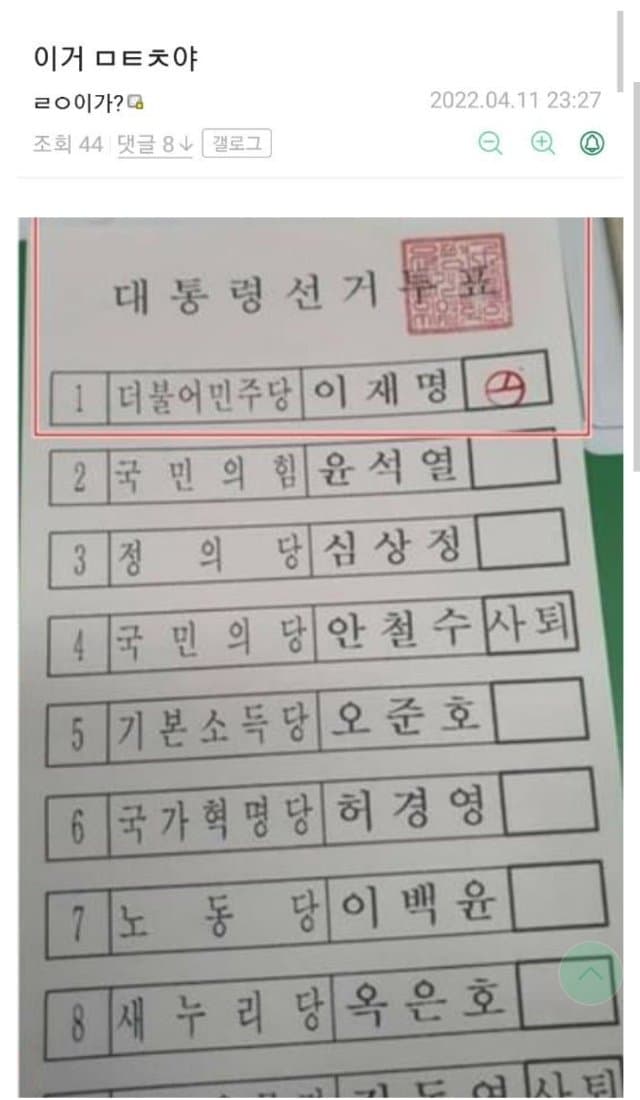 이거 ㅁㅌㅊ야
ㄹㅇ이가?
2022.04.11 23:27
조회 44 댓글 8↓ 갤로그
대통령선거투표
1 더불어민주당 이재명
2 국민의힘 윤석열
3 정의당 심상정
4 국민의당 안철수 사퇴
5 기본소득당 오준호
6 국가혁명당 허경영
7 노동당 이백윤
8 새누리당 옥은호
사퇴